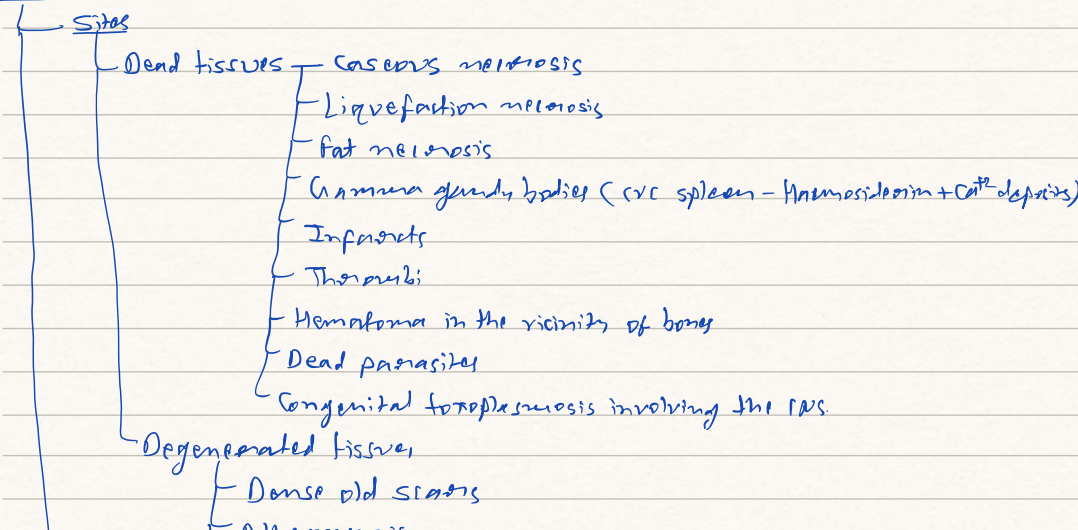 Sites
Dead tissues - Caseous necrosis
Liquefaction necrosis
Fat necrosis
Gamna gandy bodies (CVC spleen - Haemosiderin + Ca+2 deposits)
Infarcts
Thrombi
Hematoma in the vicinity of bones
Dead parasites
Congenital toxoplasmosis involving the CNS.
Degenerated tissues
Dense old scars